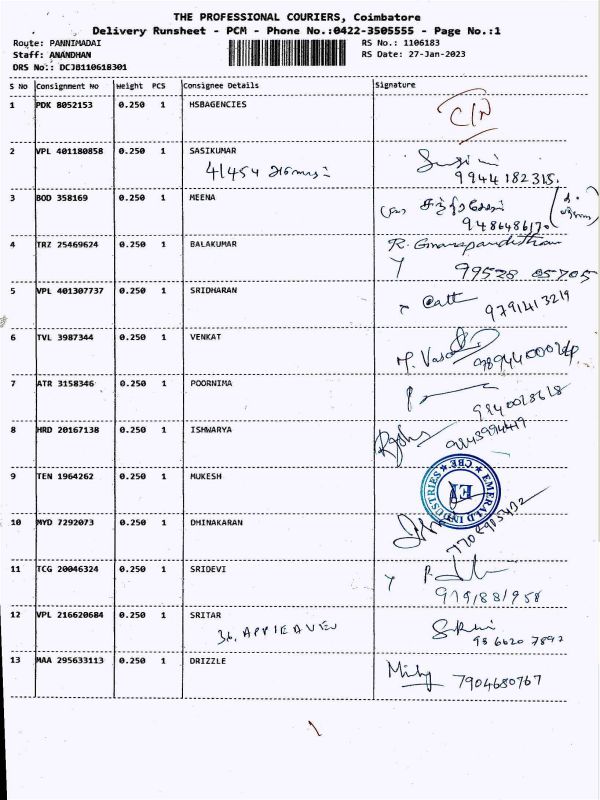 THE PROFESSIONAL COURIERS, Coimbatore
Delivery Runsheet - PCM - Phone No.:0422-3505555 - Page No.:1
Route: PANNIMADAI RS No.: 1106183
Staff: ANANDHAN RS Date: 27-Jan-2023
DRS No.: DCJB110618301
S No Consignment No Weight PCS Consignee Details Signature
1 PDK 8052153 0.250 1 HSBAGENCIES
2 VPL 401180858 0.250 1 SASIKUMAR
41454
9944182315.
3 BOD 358169 0.250 1 MEENA
9486486170
4 TRZ 25469624 0.250 1 BALAKUMAR
99528 05705
5 VPL 401307737 0.250 1 SRIDHARAN
9791413219
6 TVL 3987344 0.250 1 VENKAT
7 ATR 3158346 0.250 1 POORNIMA
8 HRD 20167138 0.250 1 ISHWARYA
9 TEN 1964262 0.250 1 MUKESH
EMERALD INDUSTRIES ★ CBE ★
EI
10 MYD 7292073 0.250 1 DHINAKARAN
11 TCG 20046324 0.250 1 SRIDEVI
12 VPL 216620684 0.250 1 SRITAR
13 MAA 295633113 0.250 1 DRIZZLE
7904680767